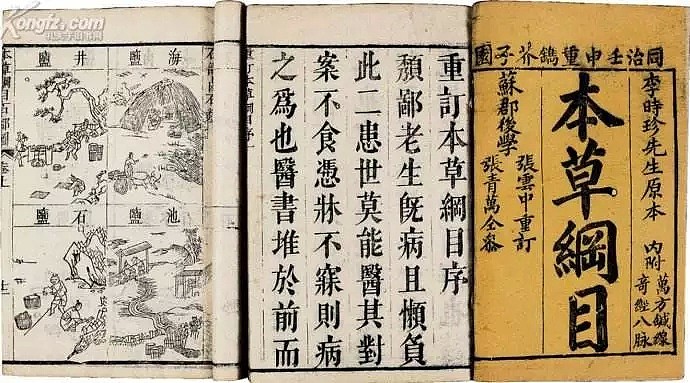 Kongfz.com
孔夫子旧书网
同治壬申重鐫芥子園
李時珍先生原本
內附萬方鍼線
奇經八脉
本草綱目
張雲中重訂
張青萬仝參
蘇郡後學
重訂本草綱目序
頽鄙老生旣病且懶負
此二患世莫能醫其對
案不食憑牀不寐則病
之爲也醫書堆於前而
海鹽
井鹽
池鹽
石鹽